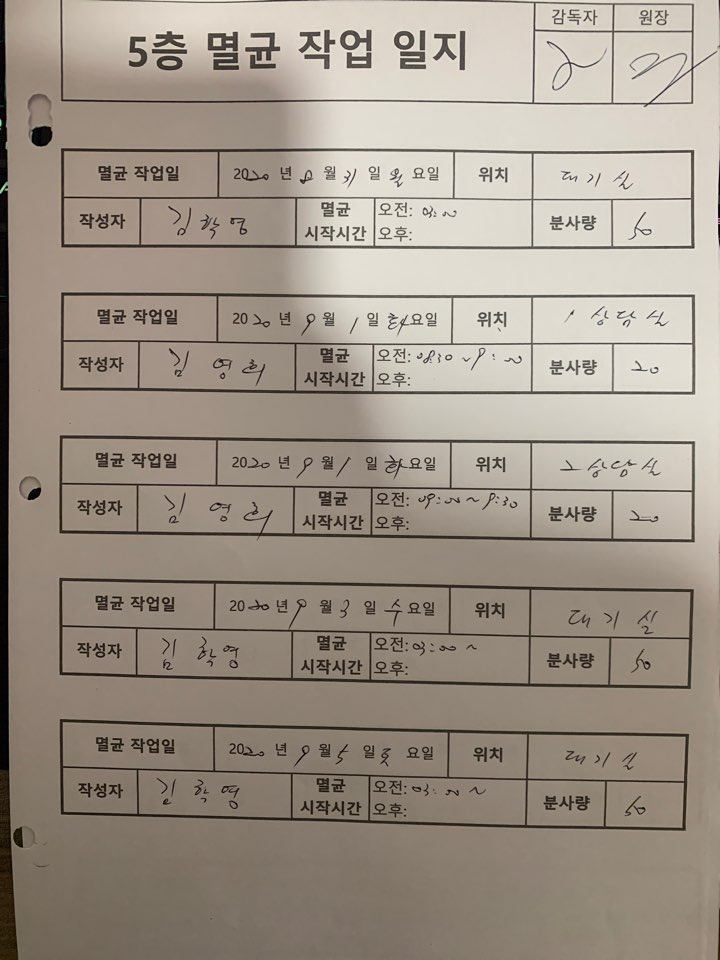 감독자 원장
5층 멸균 작업 일지
멸균 작업일 2020 년 8 월 31 일 월 요일 위치 대기실
작성자 김학영 멸균 시작시간 오전: 03:00 분사량 50
오후:
멸균 작업일 2020 년 9 월 1 일 화요일 위치 1 상담실
작성자 김영희 멸균 시작시간 오전: 08:30 ~ 9:00 분사량 20
오후:
멸균 작업일 2020 년 9 월 1 일 화요일 위치 2 상담실
작성자 김영희 멸균 시작시간 오전: 09:00 ~ 9:30 분사량 20
오후:
멸균 작업일 2020 년 9 월 3 일 수 요일 위치 대기실
작성자 김학영 멸균 시작시간 오전: 03:00 ~ 분사량 50
오후:
멸균 작업일 2020 년 9 월 5 일 토 요일 위치 대기실
작성자 김학영 멸균 시작시간 오전: 03:00 ~ 분사량 50
오후: